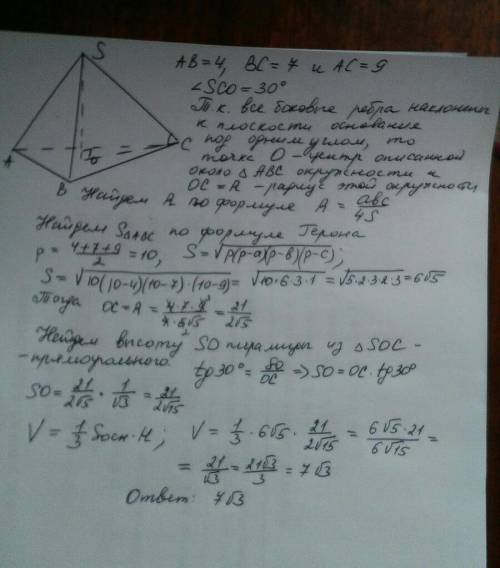 S
A
B
C
O
AB=4, BC=7 и AC=9
∠SCO=30°
Т.к. все боковые ребра наклонены
к плоскости основания
под одним углом, то
точка O – центр описанной
около △ABC окружности и
OC=R – радиус этой окружности
Найдем R по формуле R = abc/4S
Найдем S△ABC по формуле Герона
p = (4+7+9)/2 = 10, S=√(p(p-a)(p-b)(p-c));
S = √(10(10-4)(10-7)·(10-9)) = √(10·6·3·1) = √(5·2·3·2·3) = 6√5
Тогда OC=R = (4·7·9)/(4·6√5) = 21/(2√5)
Найдем высоту SO пирамиды из △SOC –
– прямоугольного. tg30° = SO/OC ⇒ SO=OC·tg30°
SO = 21/(2√5) · 1/√3 = 21/(2√15)
V = 1/3 Sосн·H; V = 1/3 · 6√5 · 21/(2√15) = (6√5·21)/(6√15) =
= 21/√3 = 21√3/3 = 7√3
Ответ: 7√3